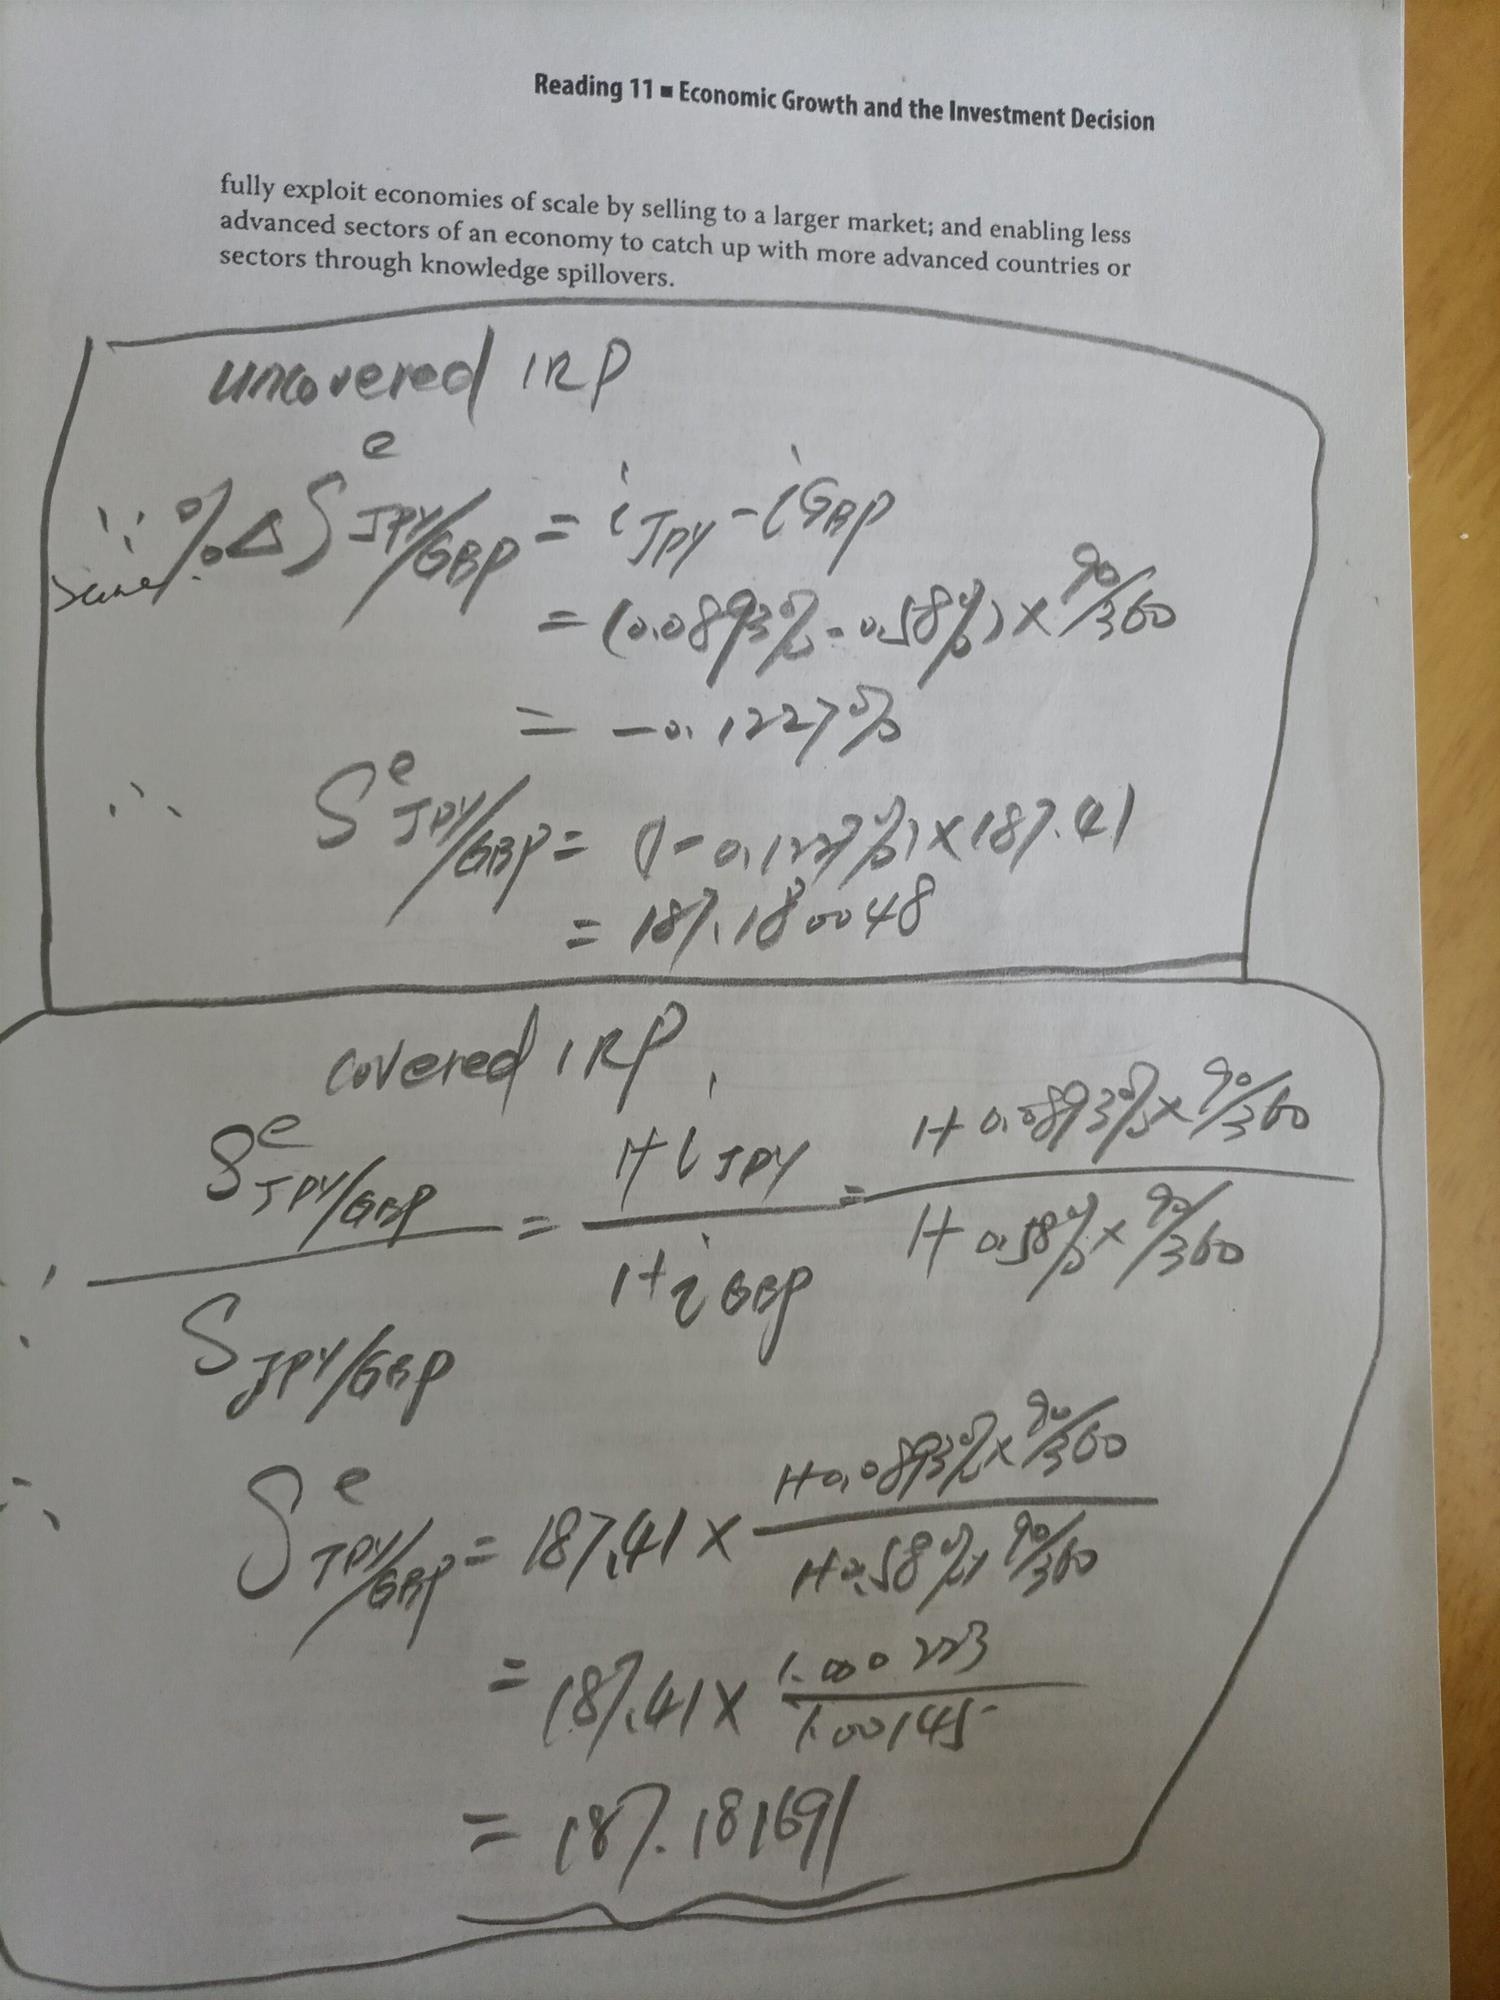 Reading 11 ■ Economic Growth and the Investment Decision
fully exploit economies of scale by selling to a larger market; and enabling less
advanced sectors of an economy to catch up with more advanced countries or
sectors through knowledge spillovers.
uncovered IRP
∵ %ΔS^e JPY/GBP = i JPY - i GBP
= (0.0893% - 0.58%) × 90/360
= -0.1227%
∴ S^e JPY/GBP = (1-0.1227%) × 187.41
= 187.180048
covered IRP
S^e JPY/GBP / S JPY/GBP = 1+i JPY / 1+i GBP = 1+0.0893%×90/360 / 1+0.58%×90/360
∴ S^e JPY/GBP = 187.41 × 1+0.0893%×90/360 / 1+0.58%×90/360
= 187.41 × 1.000223 / 1.00145
= 187.181691